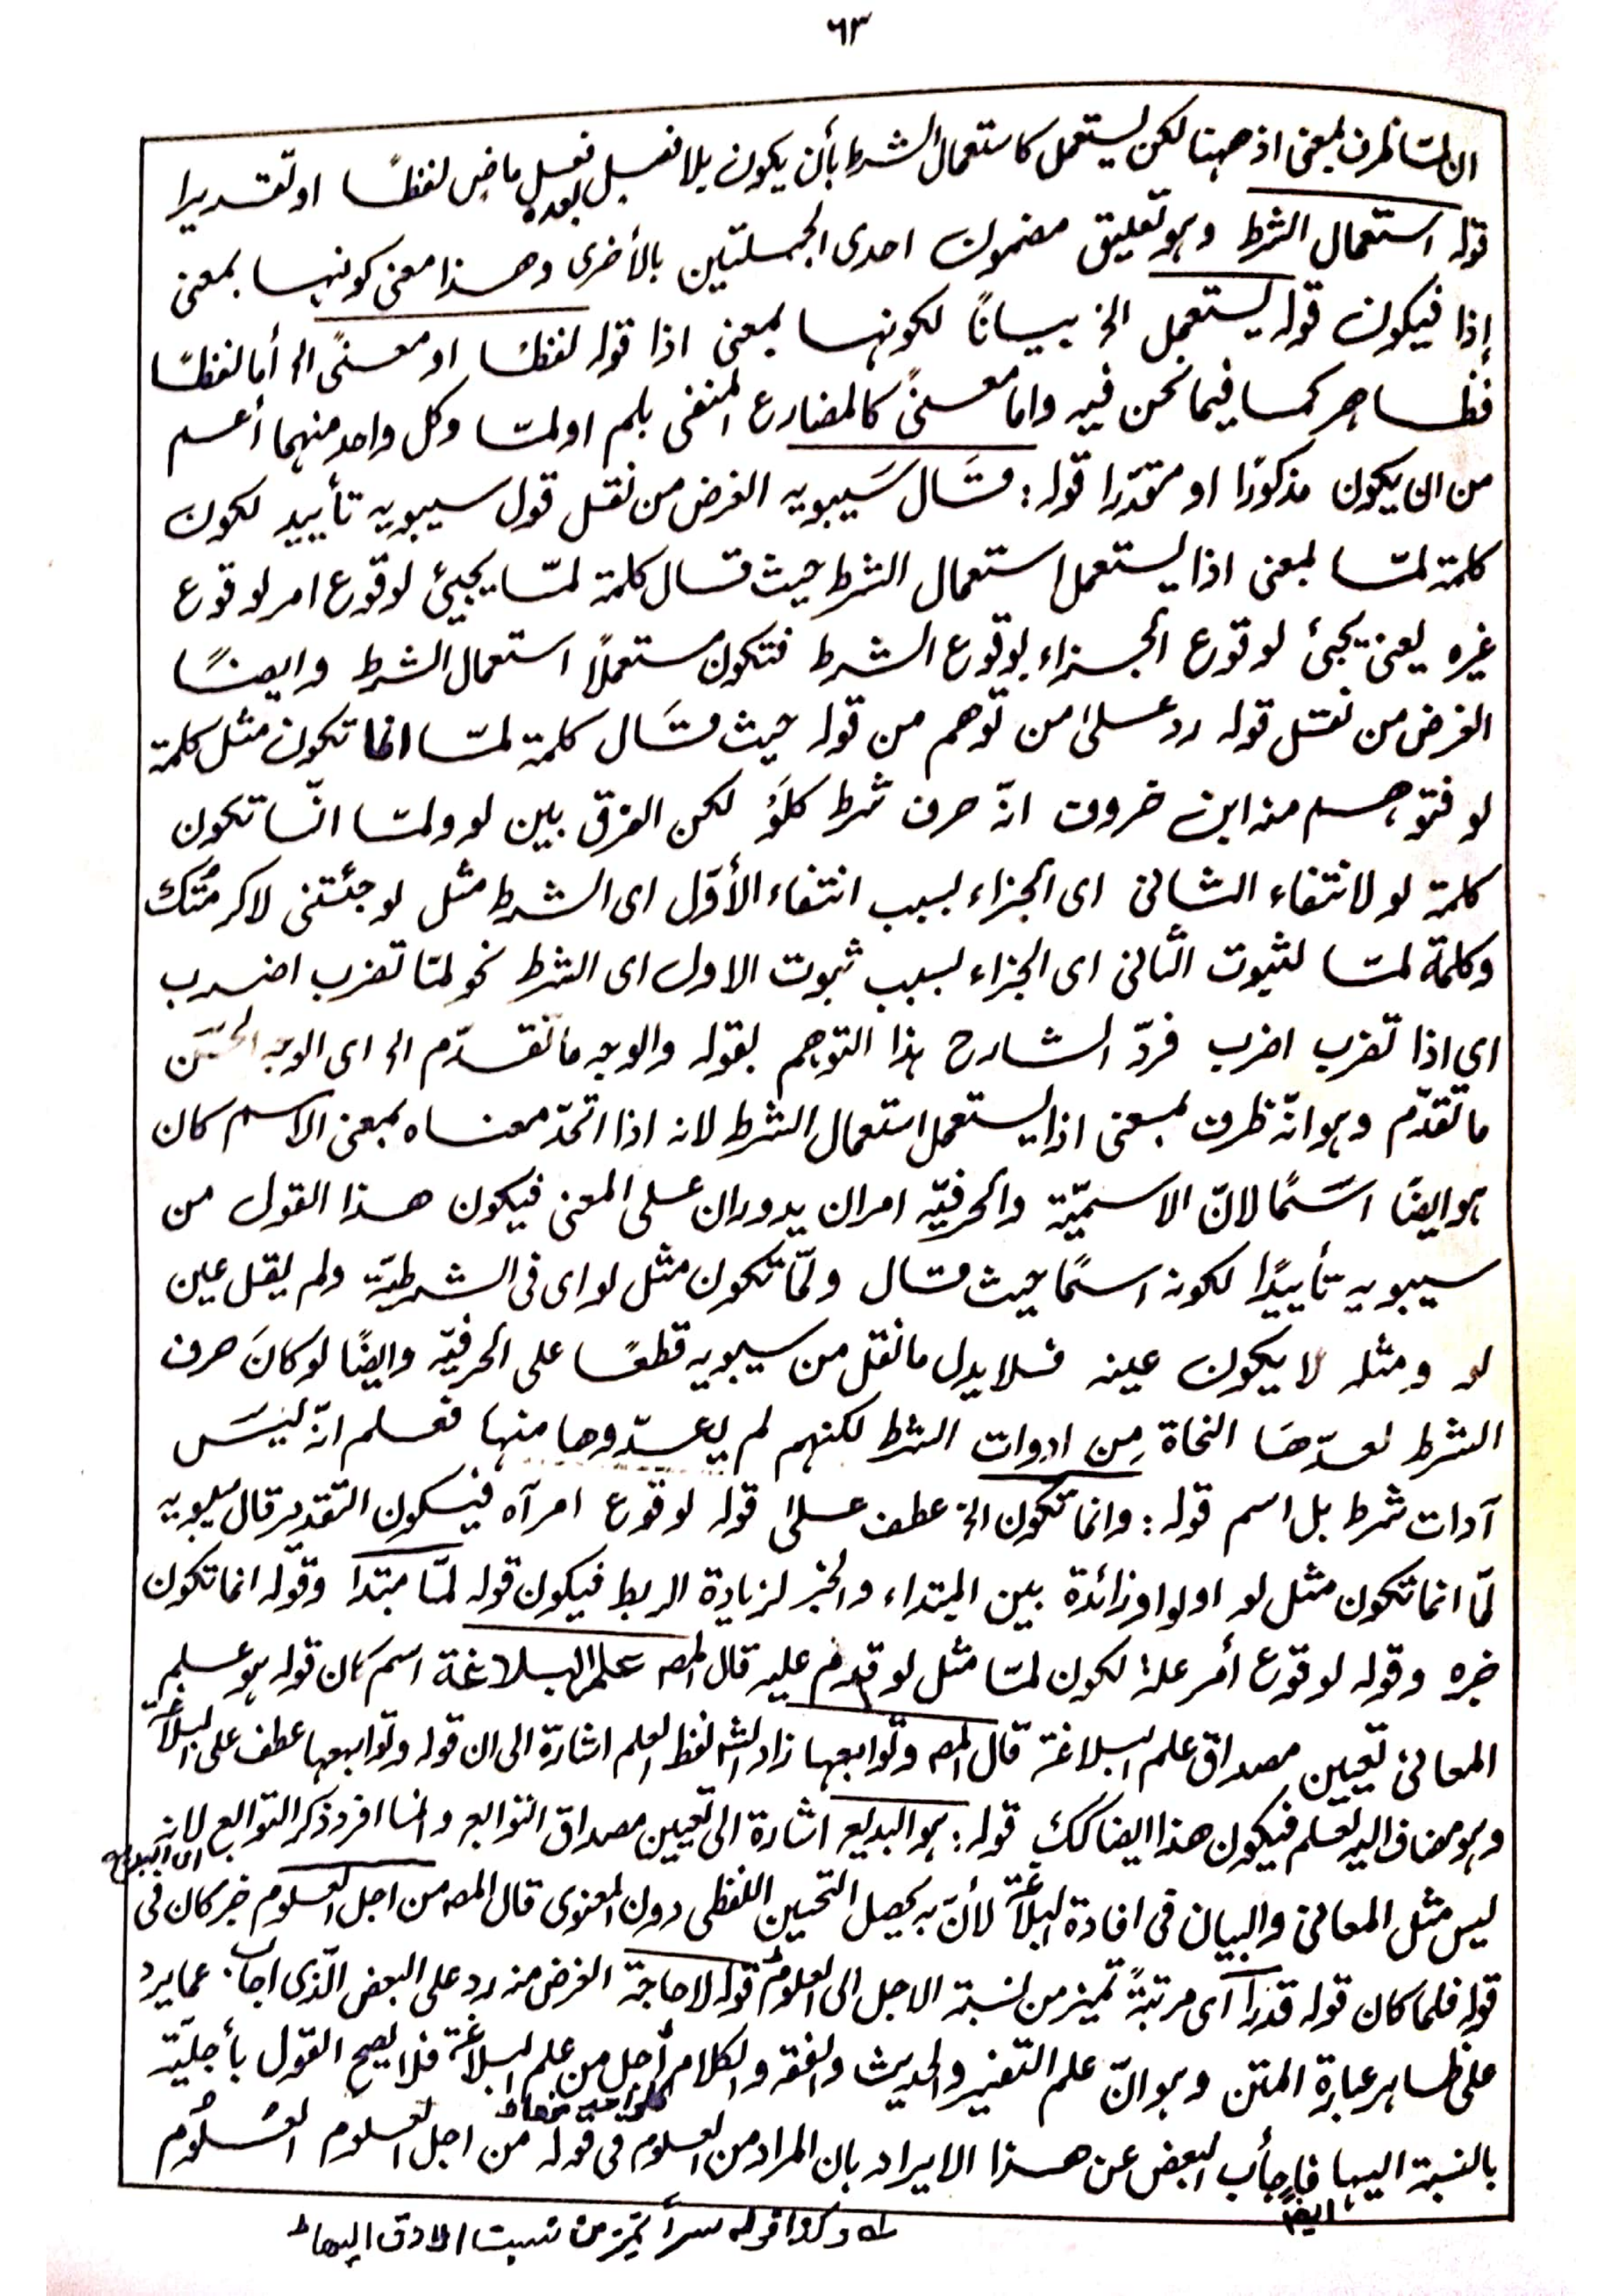 ٦٣
ان لمّا ظرف بمعنى اذ ههنا لكن يستعمل كاستعمال الشرط بأن يكون يلا فصل بعده فعل ماضٍ لفظًا او تقديرا
قوله استعمال الشرط وهو تعليق مضمون احدى الجملتين بالأخرى وهذا معنى كونها بمعنى
إذا فيكون قوله يستعمل الخ بيانًا لكونها بمعنى اذا قوله لفظا او معنىً الخ أما لفظًا
فظاهر كما فيما نحن فيه واما معنىً كالمضارع المنفى بلم اولمّا وكل واحد منهما أعم
من ان يكون مذكورًا او مقدّرا قوله: قَال سَيبويه الغرض من نقل قول سيبويه تأييد لكون
كلمة لمّا بمعنى اذا يستعمل استعمال الشرط حيث قال كلمة لمّا يجيئ لوقوع امر لوقوع
غيره يعنى يجيئ لوقوع الجزاء بوقوع الشرط فتكون مستعملًا استعمال الشرط وايضًا
الغرض من نقل قوله رد على من توهم من قوله حيث قَال كلمة لمّا انما تكون مثل كلمة
لو فتوهم منه ابن خروف انّه حرف شرط كلَوْ لكن الفرق بين لو ولمّا انّما تكون
كلمة لو لانتفاء الثانى اى الجزاء بسبب انتفاء الأوّل اى الشرط مثل لو جئتنى لاكرمتُك
وكلمة لمّا لثبوت الثانى اى الجزاء بسبب ثبوت الاول اى الشرط نحو لمّا تضرب اضرب
اى اذا تضرب اضرب فردّ الشارح هذا التوهم بقوله والوجه ما تقدّم الخ اى الوجه الحسَن
ما تقدّم وهو انّه ظرف بمعنى اذا يستعمل استعمال الشرط لانه اذا اتحّد معناه بمعنى الاسم كان
هو ايضًا اسَمًا لانّ الاسميّة والحرفيّه امران يدوران على المعنى فيكون هذا القول من
سيبويه تأييدًا لكونه اسمًا حيث قال ولمّا تكون مثل لو اى فى الشرطيّة ولم يقل عين
لو ومثله لا يكون عينه فلا يدل ما نقل من سيبويه قطعًا على الحرفيّه وايضًا لو كانَ حرف
الشرط لعدّهَا النحاة مِن ادوات الشرط لكنهم لم يعدّوها منها فعلم انّه ليسَ
آدات شرط بل اسم قوله: وانما تكون الخ عطف على قوله لوقوع امر آه فيكون التقدير قال سيبويه
لمّا انما تكون مثل لو اولواو زائدة بين المبتداء والخبر لزيادة الربط فيكون قوله لمّا مبتدا وقوله انما تكون
خبره وقوله لوقوع أمر علة لكون لمّا مثل لو قدم عليه قال المصـ علم البلاغة اسم كان قوله هو علم
المعانى تعيين مصداق علم البلاغة قال المصـ وتوابعها زاد الشـ لفظ العلم اشارة الى ان قوله وتوابعها عطف على البلاغة
وهو مضاف اليه لعلم فيكون هذا ايضا كك قوله: هو البديع اشارة الى تعيين مصداق التوابع وانما افرد ذكر التوابع لانه
اى البديع
ليس مثل المعانى والبيان فى افادة البلاغة لأنّ به يحصل التحسين اللفظى دون المعنوى قال المصـ من اجل العلوم خبر كان فى
قوله فلما كان قوله قدرًا اى مرتبةً تميز من نسبة الاجل الى العلوم قوله لا حاجة الغرض منه رد على البعض الّذى اجاب عما يرد
على ظاهر عبارة المتن وهو انّ علم التفسير والحديث والفقه والكلام أجل من علم البلاغة فلا يصح القول بأجليّة
بالنسبة اليها فاجأب البعض عن هذا الايراد بان المراد من العلوم فى قوله من اجل العلوم العُلوُم
ايضًا
وكذا قوله سرًا تميز من نسبت الادق اليها